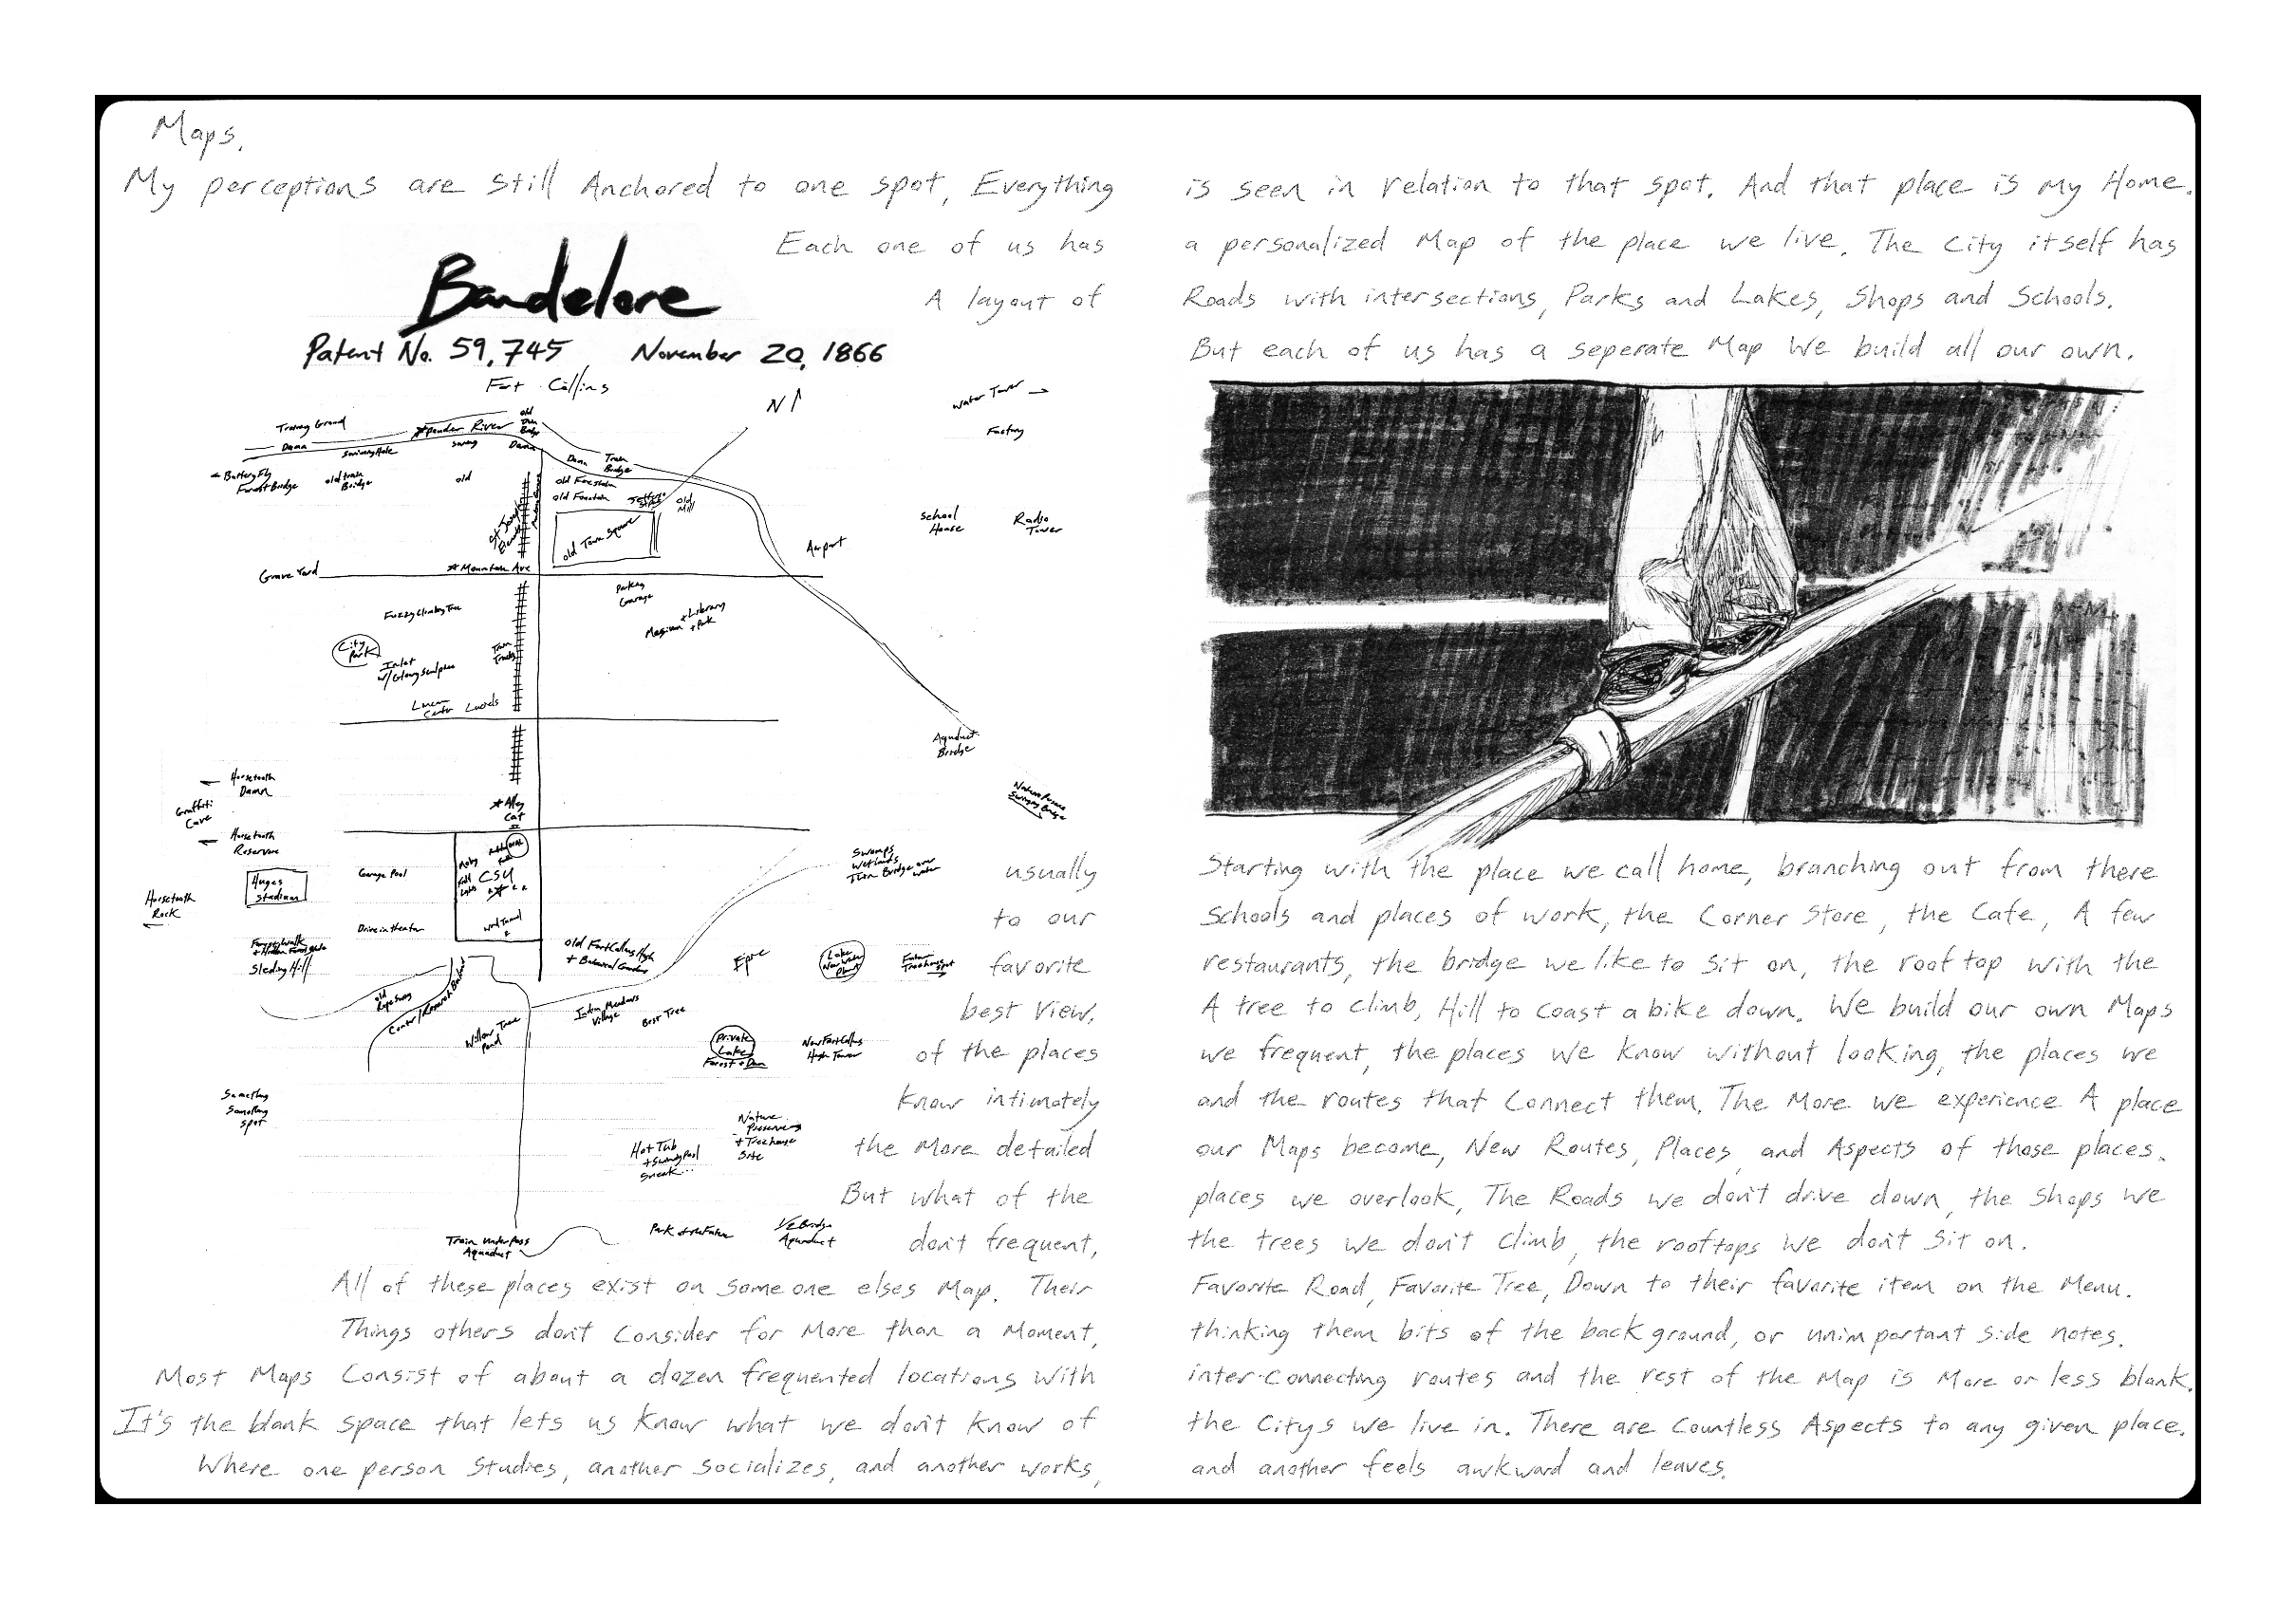 Maps.
My perceptions are still Anchored to one spot, Everything is seen in relation to that spot. And that place is My Home.
Each one of us has a personalized Map of the place we live. The City itself has
A layout of Roads with intersections, Parks and Lakes, Shops and Schools.
But each of us has a seperate Map We build all our own.
Bandelore
Patent No. 59,745 November 20, 1866
Fort Collins
N
Water Tower
Factory
Training Ground
old
Bridge
Pouder River
Damn
Swimming Hole
Swing
Damn
Damn
Train
Bridge
Butterfly
Forest Bridge
old train
Bridge
old
old Firestation
old Fountain
old
Mill
old Town Square
School
House
Radio
Tower
Airport
Grave Yard
Mountain Ave
Parking
Garage
Fuzzy Climbing Tree
Library
+ Park
City
Park
Inlet
Train
Tracks
Aquaduct
Bridge
Horsetooth
Damn
Graffiti
Cave
Alley
Cat
Nature
Swinging Bridge
Horsetooth
Reservoir
Hughes
Stadium
Garage Pool
CSU
Swamps
Wetlands
Thin Bridge over
water
Horsetooth
Rock
Drive in theater
Sleding Hill
Old Fort Collins High
+ Botanical Gardens
Epic
Lake
old
Rope Swing
Center/Research Blvd
Willow Tree
Pond
Village
Best Tree
Private
Lake
Forest + Damn
New Fort Collins
High Tower
Something
Something
Spot
Hot Tub
+ Swimming Pool
Sneak...
Nature
Preserve
+ Treehouse
Site
Train underpass
Aquaduct
Park of the Future
1/2 Bridge
Aquaduct
usually Starting with the place we call home, branching out from there
to our Schools and places of work, the Corner Store, the Cafe, A few
favorite restaurants, the bridge we like to sit on, the roof top with the
best View, A tree to climb, Hill to Coast a bike down. We build our own Maps
of the places we frequent, the places we know without looking, the places we
know intimately and the routes that Connect them. The More we experience A place
the More detailed our Maps become, New Routes, Places, and Aspects of those places.
But what of the places we overlook, The Roads we don't drive down, the shops we
don't frequent, the trees we don't Climb, the rooftops We don't sit on.
All of these places exist on someone elses Map. Their Favorite Road, Favorite Tree, Down to their favorite item on the Menu.
Things others don't Consider for More than a Moment, thinking them bits of the back ground, or unimportant side notes.
Most Maps Consist of about a dozen frequented locations with inter-Connecting routes and the rest of the Map is More or less blank.
It's the blank space that lets us know what we don't know of the Citys we live in. There are Countless Aspects to any given place.
Where one person Studies, another socializes, and another works, and another feels awkward and leaves.